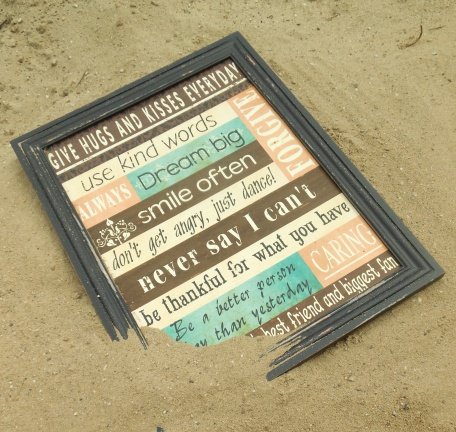 GIVE HUGS AND KISSES EVERYDAY
use kind words
ALWAYS
Dream big
FORGIVE
smile often
don't get angry, just dance!
never say I can't
be thankful for what you have
CARING
Be a better person
than yesterday
best friend and biggest fan